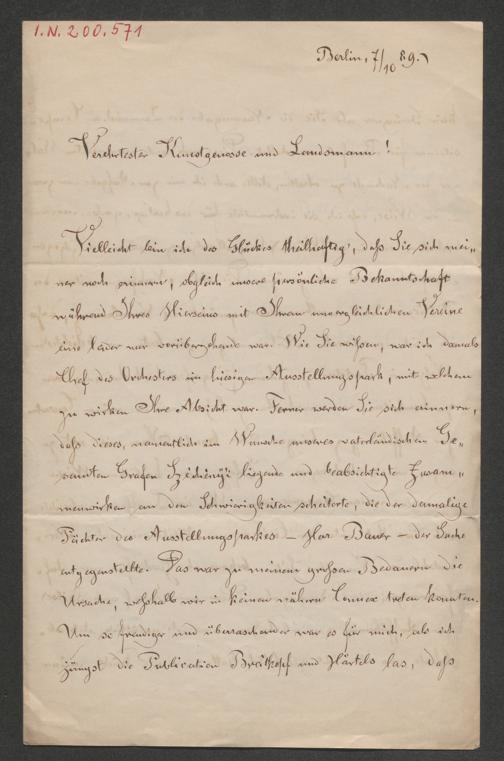 I.N. 200.571
Berlin, 7/10 89.
Verehrtester Kunstgenosse und Landsmann!
Vielleicht bin ich des Glückes theilhaftig, daß Sie sich mei-
ner noch erinnern, obgleich unsere persönliche Bekanntschaft
während Ihres Hierseins mit Ihrem unvergleichlichen Vereine
eine leider nur vorübergehende war. Wie Sie wißen, war ich damals
Chef des Orchesters im hiesigen Ausstellungspark, mit welchem
zu wirken Ihre Absicht war. Ferner werden Sie sich erinnern,
daß dieses, namentlich im Wunsche unseres vaterländischen Ge-
sandten Grafen Szécheniji liegende und beabsichtigte Zusam-
menwirken an den Schwierigkeiten scheiterte, die der damalige
Pächter des Ausstellungsparkes – Herr Bauer – der Sache
entgegenstellte. Das war zu meinem großen Bedauern die
Ursache, weßhalb wir in keinen nähern Connex treten konnten.
Um so freudiger und überraschender war es für mich, als ich
jüngst die Publication Breitkopf und Härtels las, daß